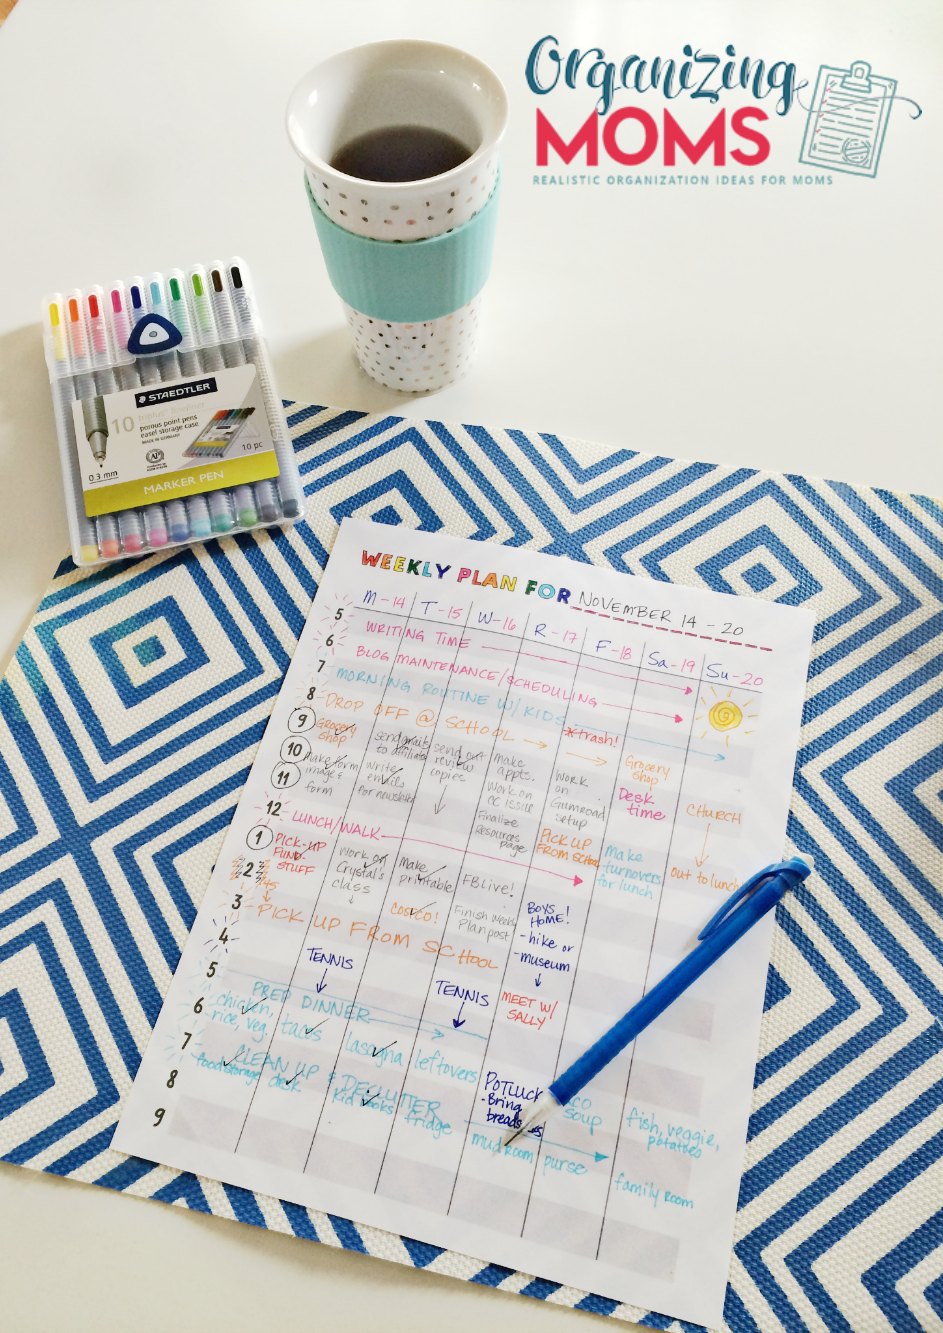 Organizing
MOMS
REALISTIC ORGANIZATION IDEAS FOR MOMS
STAEDTLER
10 triplus fineliner
porous point pens
easel storage case
MADE IN GERMANY
0.3 mm
10 pc
MARKER PEN
WEEKLY PLAN FOR NOVEMBER 14 - 20
M-14 T-15 W-16 R-17 F-18 Sa-19 Su-20
5
WRITING TIME
6
BLOG MAINTENANCE/SCHEDULING
7
MORNING ROUTINE W/ KIDS
8
DROP OFF @ SCHOOL
trash!
9
GROCERY
SHOP
send emails
to affiliates
send out
review
copies
make
appts.
Work
on
Gumroad
setup
Grocery
shop!
10
Make form
image &
form
write
emails
for newsletter
Work on
CC issue
Desk
time
CHURCH
11
Finalize
Resources
page
12
LUNCH/WALK
PICK UP
FROM SCHOOL
Make
turnovers
for lunch
out to lunch
1
PICK-UP
FUND-
STUFF
Work on
Crystal's
class
Make
printable
FB Live!
2
:45
3
PICK UP FROM SCHOOL
COSTCO!
Finish Weekly
Plan post
BOYS
HOME!
-hike or
-museum
4
TENNIS
TENNIS
MEET W/
SALLY!
5
PREP DINNER
6
chicken,
rice, veg.
tacos
lasagna
leftovers
POTLUCK
-Bring
breadsticks
soup
fish, veggie,
potatoes
7
CLEAN UP & DECLUTTER
food storage
desk
kid books
fridge
mudroom
purse
family room
8
9